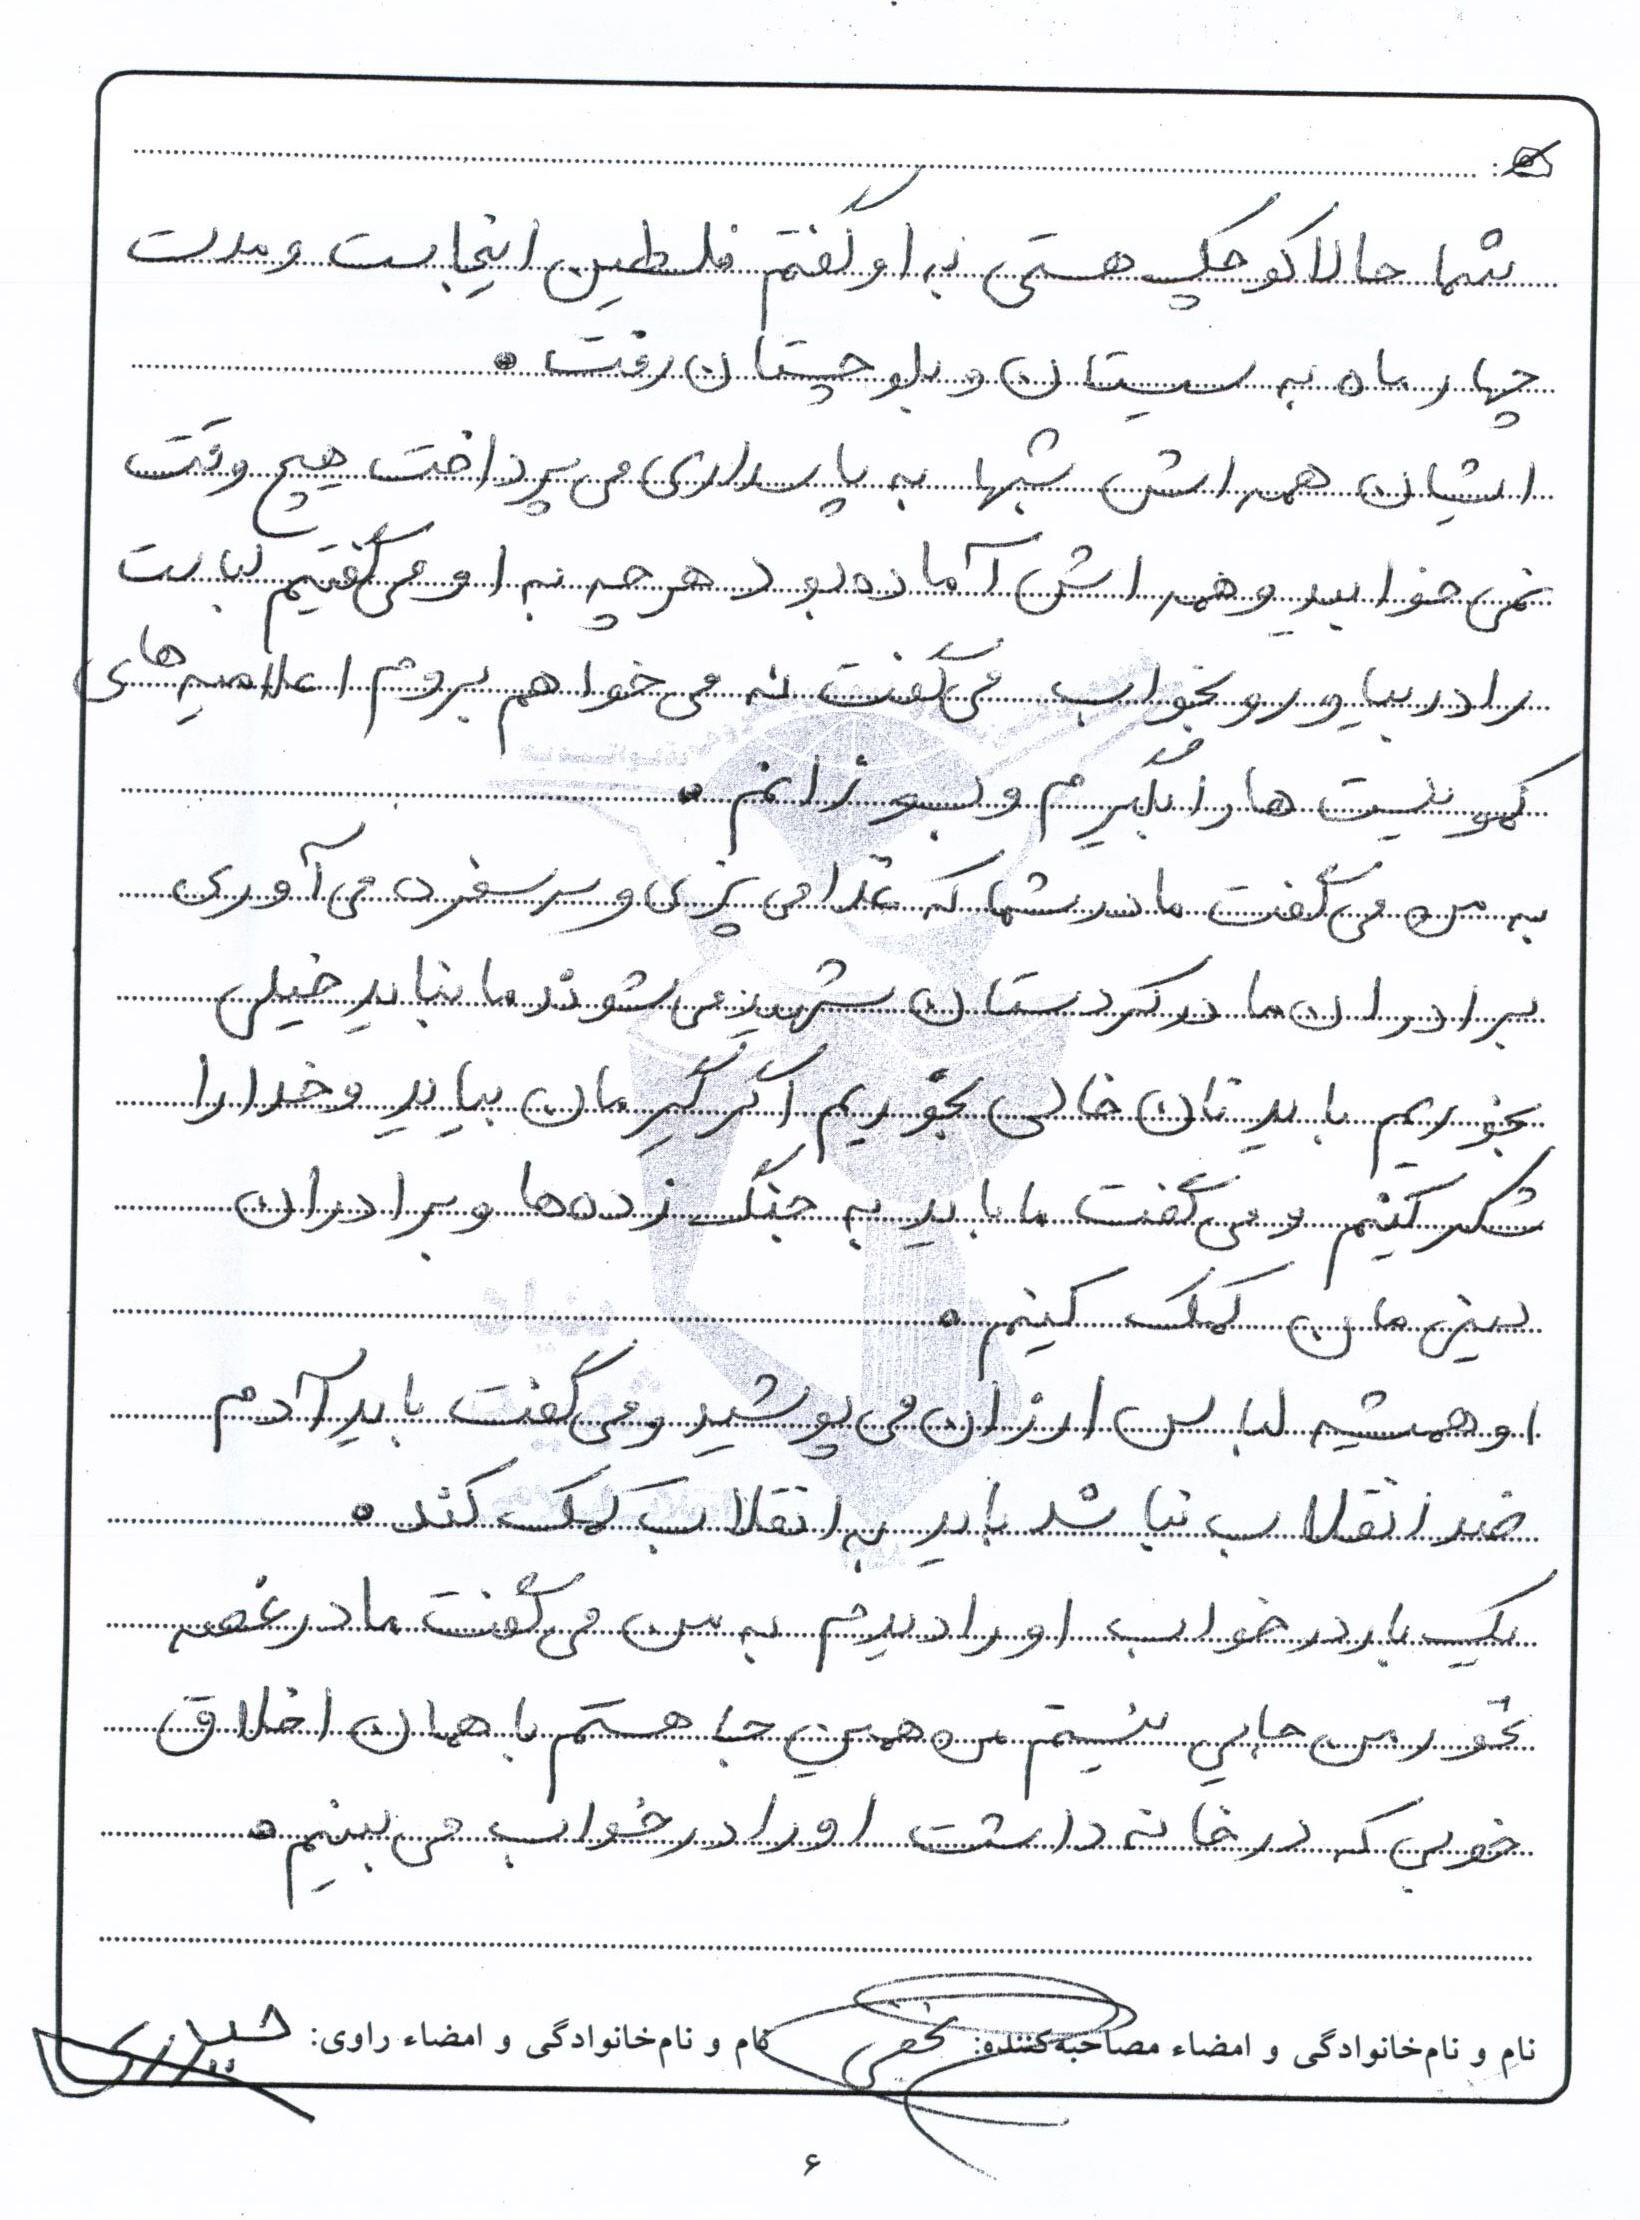 شما حالا کوچک هستی به او گفتم فلسطین اینجاست و مدت
چهار ماه به سیستان و بلوچستان رفت .
ایشان همه اش شبها به پاسداری می پرداخت هیچ وقت
نمی خوابید و همه اش آماده بود هر چه به او می گفتیم لباست
را در بیاور و بخواب می گفت نه می خواهم بروم اعلامیه های
کمونیست ها را بگیرم و بسوزانم .
به من می گفت مادر شما که غذا می پزی و سر سفره می آوری
برادران ما در کردستان شهید می شوند ما نباید خیلی
بخوریم باید نان خالی بخوریم اگر گیرمان بیاید و خدا را
شکر کنیم و می گفت ما باید به جنگ زده ها و برادران
دینی مان کمک کنیم .
او همیشه لباس ارزان می پوشید و می گفت باید آدم
ضد انقلاب نباشد باید به انقلاب کمک کند .
یک بار در خواب او را دیدم به من می گفت مادر غصه
نخور من جایی نیستم من همین جا هستم با همان اخلاق
خوبی که در خانه داشت او را در خواب می بینیم .
نام و نام‌خانوادگی و امضاء مصاحبه‌کننده: نام و نام‌خانوادگی و امضاء راوی:
۶